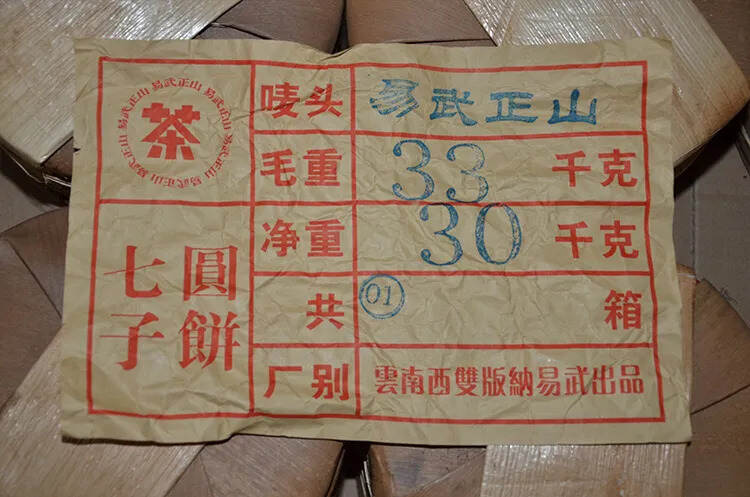 易武正山 易武正山 易武正山 易武正山 易武正山 易武正山
茶
七子
圓餅
唛头 易武正山
毛重 33 千克
净重 30 千克
共 01 箱
厂别 雲南西雙版納易武出品